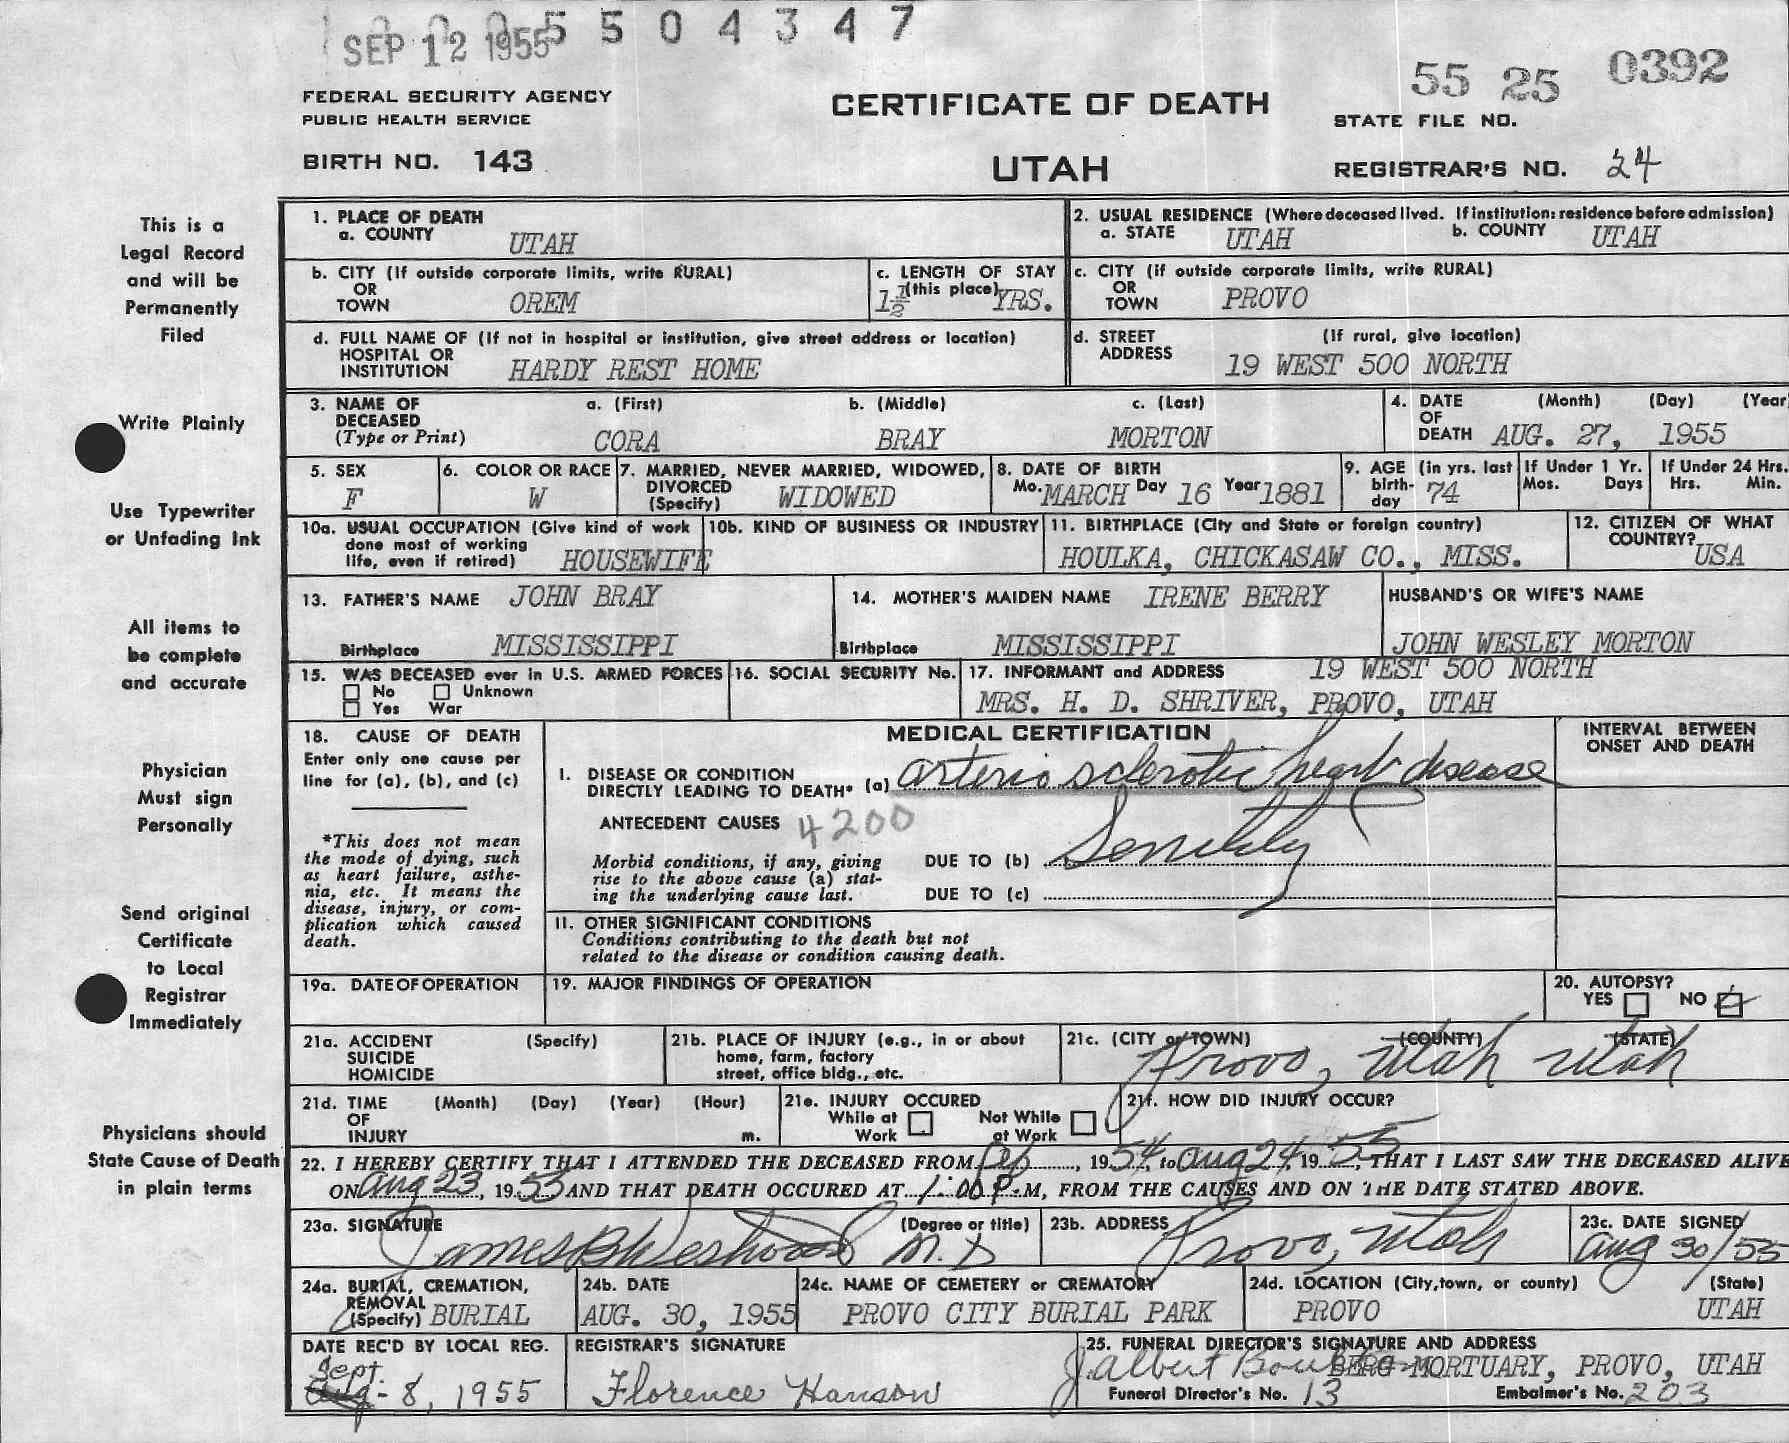 SEP 12 1955
5 5 0 4 3 4 7
55 25 0392
FEDERAL SECURITY AGENCY
PUBLIC HEALTH SERVICE
CERTIFICATE OF DEATH
STATE FILE NO.
BIRTH NO. 143
UTAH
REGISTRAR'S NO. 24
This is a
Legal Record
and will be
Permanently
Filed
Write Plainly
Use Typewriter
or Unfading Ink
All items to
be complete
and accurate
Physician
Must sign
Personally
Send original
Certificate
to Local
Registrar
Immediately
Physicians should
State Cause of Death
in plain terms
1. PLACE OF DEATH
a. COUNTY UTAH
2. USUAL RESIDENCE (Where deceased lived. If institution: residence before admission)
a. STATE UTAH b. COUNTY UTAH
b. CITY (If outside corporate limits, write RURAL)
OR
TOWN OREM
c. LENGTH OF STAY
(this place)
1½ YRS.
c. CITY (if outside corporate limits, write RURAL)
OR
TOWN PROVO
d. FULL NAME OF (If not in hospital or institution, give street address or location)
HOSPITAL OR
INSTITUTION HARDY REST HOME
d. STREET (If rural, give location)
ADDRESS 19 WEST 500 NORTH
3. NAME OF a. (First) b. (Middle) c. (Last)
DECEASED
(Type or Print) CORA BRAY MORTON
4. DATE (Month) (Day) (Year
OF
DEATH AUG. 27, 1955
5. SEX
F
6. COLOR OR RACE
W
7. MARRIED, NEVER MARRIED, WIDOWED,
DIVORCED
(Specify) WIDOWED
8. DATE OF BIRTH
Mo. MARCH Day 16 Year 1881
9. AGE (in yrs. last
birth-
day 74
If Under 1 Yr.
Mos. Days
If Under 24 Hrs.
Hrs. Min.
10a. USUAL OCCUPATION (Give kind of work
done most of working
life, even if retired) HOUSEWIFE
10b. KIND OF BUSINESS OR INDUSTRY
11. BIRTHPLACE (City and State or foreign country)
HOULKA, CHICKASAW CO., MISS.
12. CITIZEN OF WHAT
COUNTRY?
USA
13. FATHER'S NAME JOHN BRAY
Birthplace MISSISSIPPI
14. MOTHER'S MAIDEN NAME IRENE BERRY
Birthplace MISSISSIPPI
HUSBAND'S OR WIFE'S NAME
JOHN WESLEY MORTON
15. WAS DECEASED ever in U.S. ARMED FORCES
No Unknown
Yes War
16. SOCIAL SECURITY No.
17. INFORMANT and ADDRESS 19 WEST 500 NORTH
MRS. H. D. SHRIVER, PROVO, UTAH
18. CAUSE OF DEATH
Enter only one cause per
line for (a), (b), and (c)
*This does not mean
the mode of dying, such
as heart failure, asthe-
nia, etc. It means the
disease, injury, or com-
plication which caused
death.
MEDICAL CERTIFICATION
INTERVAL BETWEEN
ONSET AND DEATH
I. DISEASE OR CONDITION
DIRECTLY LEADING TO DEATH* (a) arterio sclerotic heart disease
ANTECEDENT CAUSES 4200
Morbid conditions, if any, giving
rise to the above cause (a) stat-
ing the underlying cause last.
DUE TO (b) Senility
DUE TO (c)
II. OTHER SIGNIFICANT CONDITIONS
Conditions contributing to the death but not
related to the disease or condition causing death.
19a. DATE OF OPERATION
19. MAJOR FINDINGS OF OPERATION
20. AUTOPSY?
YES NO
21a. ACCIDENT (Specify)
SUICIDE
HOMICIDE
21b. PLACE OF INJURY (e.g., in or about
home, farm, factory
street, office bldg., etc.
21c. (CITY or TOWN) (COUNTY) (STATE)
Provo, Utah Utah
21d. TIME (Month) (Day) (Year) (Hour)
OF
INJURY m.
21e. INJURY OCCURED
While at Not While
Work at Work
21f. HOW DID INJURY OCCUR?
22. I HEREBY CERTIFY THAT I ATTENDED THE DECEASED FROM Feb, 1954, to Aug 24, 1955, THAT I LAST SAW THE DECEASED ALIVE
ON Aug 23, 1955 AND THAT DEATH OCCURED AT 1:00 P.M, FROM THE CAUSES AND ON THE DATE STATED ABOVE.
23a. SIGNATURE (Degree or title)
James B Westwood M.D
23b. ADDRESS
Provo, Utah
23c. DATE SIGNED
Aug 30/55
24a. BURIAL, CREMATION,
REMOVAL
(Specify) BURIAL
24b. DATE
AUG. 30, 1955
24c. NAME OF CEMETERY or CREMATORY
PROVO CITY BURIAL PARK
24d. LOCATION (City, town, or county) (State)
PROVO UTAH
DATE REC'D BY LOCAL REG.
Sept.
Aug - 8, 1955
REGISTRAR'S SIGNATURE
Florence Hanson
25. FUNERAL DIRECTOR'S SIGNATURE AND ADDRESS
J. Albert BERG MORTUARY, PROVO, UTAH
Funeral Director's No. 13 Embalmer's No. 203